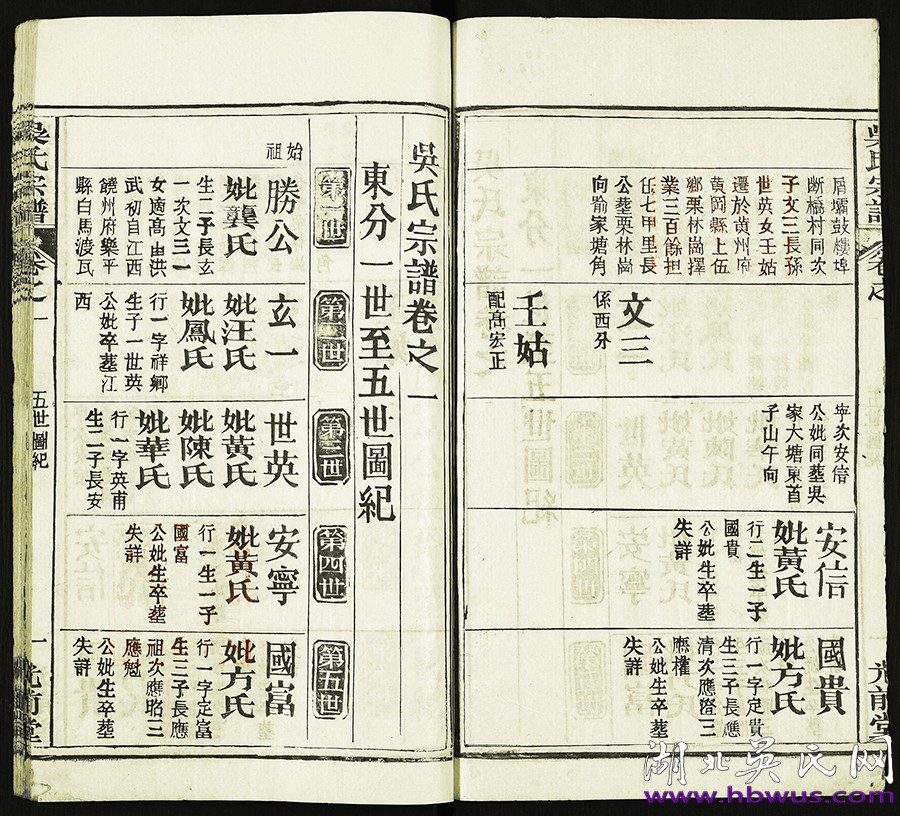 吳氏宗譜卷之一
東分一世至五世圖紀
第一世
第二世
第三世
第四世
第五世
始祖
勝公
妣龔氏
生二子長玄
一次文三一
女適高由洪
武初自江西
饒州府樂平
縣白馬渡瓦
玄一
妣汪氏
妣鳳氏
行一字祥卿
生子一世英
公妣卒葬江
西
世英
妣黃氏
妣陳氏
妣華氏
行一字英甫
生二子長安
安寧
妣黃氏
行一生一子
國富
公妣生卒葬
失詳
國富
妣方氏
行一字定富
生三子長應
祖次應略三
應魁
公妣生卒葬
失詳
吳氏宗譜
卷之一
五世圖紀
一
光前堂
屑壩鼓樓埠
斷橋村同次
子文三長孫
世英女壬姑
遷於黃州府
黃岡縣上伍
鄉栗林崗擇
業三百餘担
任七甲里長
公葬栗林崗
向喻家塘角
文三
係西分
壬姑
配高宏正
寧次安信
公妣同葬吳
家大塘東首
子山午向
安信
妣黃氏
行二生一子
國貴
公妣生卒葬
失詳
國貴
妣方氏
行一字定貴
生三子長應
清次應證三
應權
公妣生卒葬
失詳
吳氏宗譜
光前堂
湖北吴氏网
www.hbwus.com